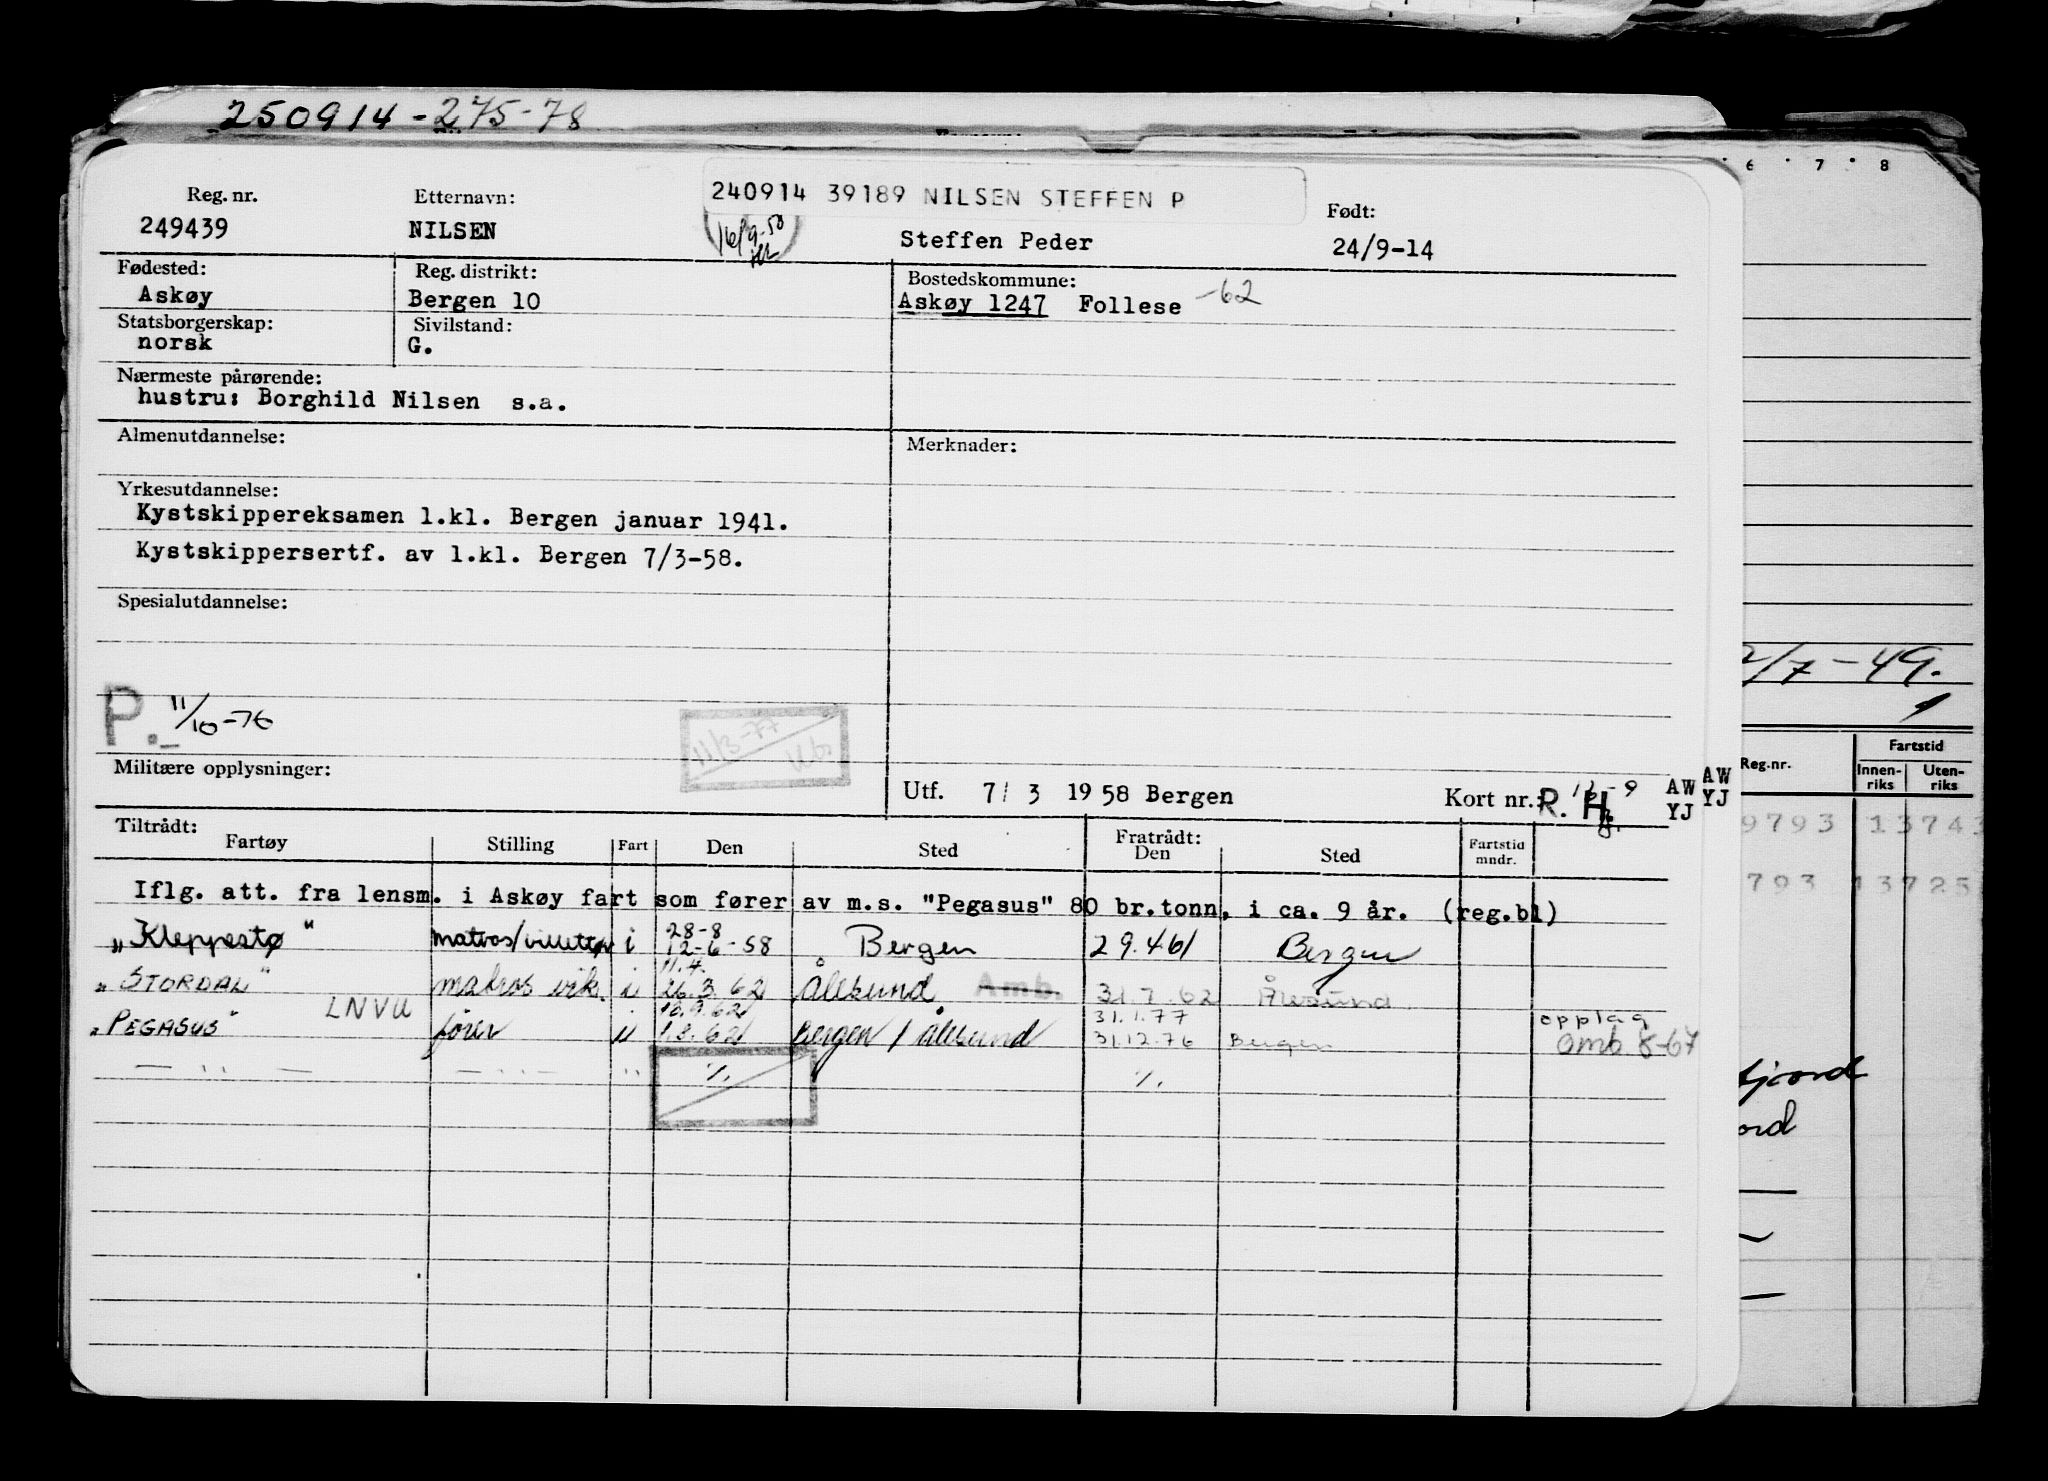 250914-275-78
6 7 8
Reg. nr. Etternavn: 240914 39189 NILSEN STEFFEN P Født:
249439 NILSEN 16/9-58 Steffen Peder 24/9-14
Fødested: Reg. distrikt: Bostedskommune:
Askøy Bergen 10 Askøy 1247 Follese -62
Statsborgerskap: Sivilstand:
norsk G.
Nærmeste pårørende:
hustru: Borghild Nilsen s.a.
Almenutdannelse: Merknader:
Yrkesutdannelse:
Kystskippereksamen 1.kl. Bergen januar 1941.
Kystskippersertf. av 1.kl. Bergen 7/3-58.
Spesialutdannelse:
2/7-49.
P. 11/10-76
11/3-77
Militære opplysninger:
Utf. 7/ 3 1958 Bergen Kort nr.: R. H AW AW
YJ YJ
Reg.nr. Fartstid
Innen-riks Uten-riks
Tiltrådt: Fratrådt:
Fartøy Stilling Fart Den Sted Den Sted Fartstid mndr.
9793 13743
793 13725
Iflg. att. fra lensm. i Askøy fart som fører av m.s. "Pegasus" 80 br.tonn, i ca. 9 år. (reg.bl)
28-8
"Kleppestø" matros/billettør i 12-6-58 Bergen 29.4.61 Bergen
11.4.
"STORDAL" matros vik. i 26.3.62 Ålesund Amb. 31.7.62 Ålesund
LNVU 10.9.62 31.1.77 opplag
"PEGASUS" fører u 1.8.62 Bergen / Ålesund 31.12.76 Bergen Omb. 8-67
— " — — " — " %. %.
fjord
ord